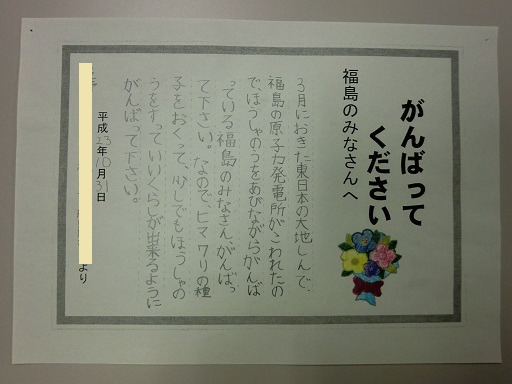 がんばって
ください
福島のみなさんへ
3月におきた東日本の大地しんで、
福島の原子力発電所がこわれたの
で、ほうしゃのうをあびながらがんば
っている福島のみなさん、がんばっ
て下さい。なので、ヒマワリの種
子をおくって、少しでもほうしゃの
うをすって、いいくらしが出来るように
がんばって下さい。
平成23年10月31日
より